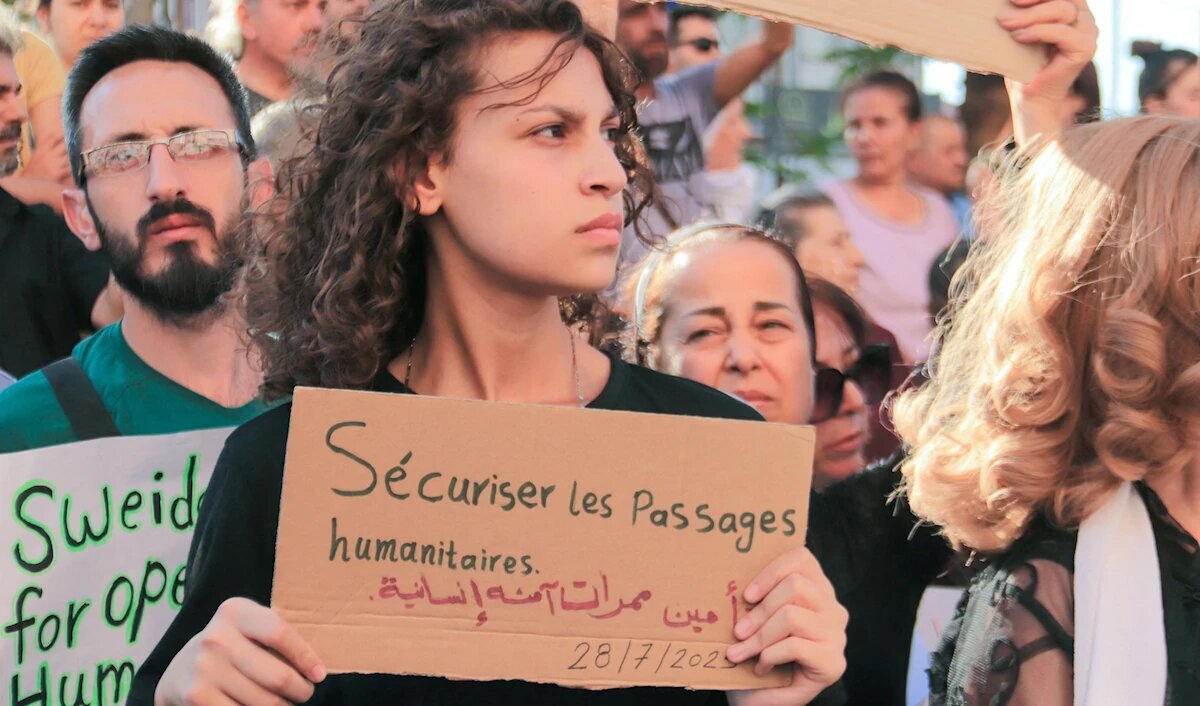 Sécuriser les Passages
humanitaires.
أمين ممرات آمنه إنسانية.
28/7/2025
Sweid
for ope
Hum